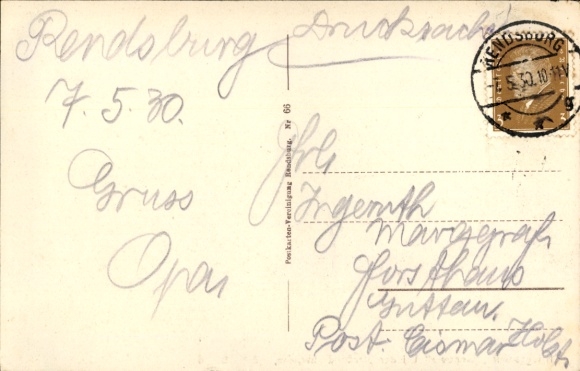 Rendsburg
Drucksache!
7.5.30.
Gruss
Opa
RENDSBURG
7.5.30.10-11V
Postkarten-Vereinigung Rendsburg. Nr 66
Frl.
Ingeruth
Marggraf
Forsthaus
Guttau.
Post. Cismar Holst.